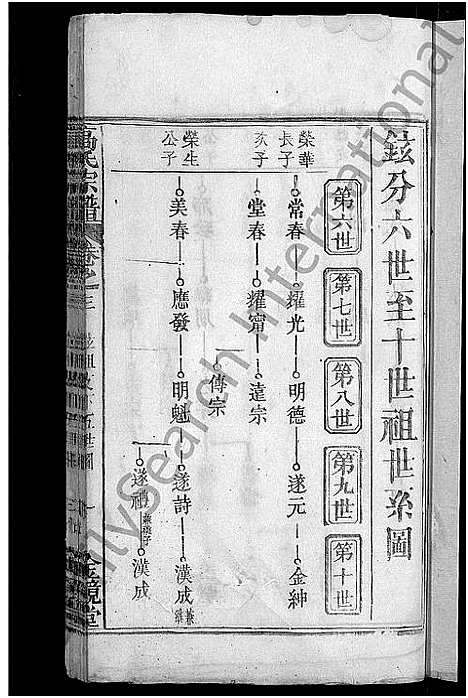 鉉分六世至十世祖世系圖
第六世
第七世
第八世
第九世
第十世
榮華長子
常春
耀光
明德
遂元
金紳
次子
堂春
耀甯
達宗
傳宗
榮生公子
美春
應發
明魁
遂詩
漢成
遂禮
漢成
高氏宗譜
卷之三
金鏡堂
MySearch International